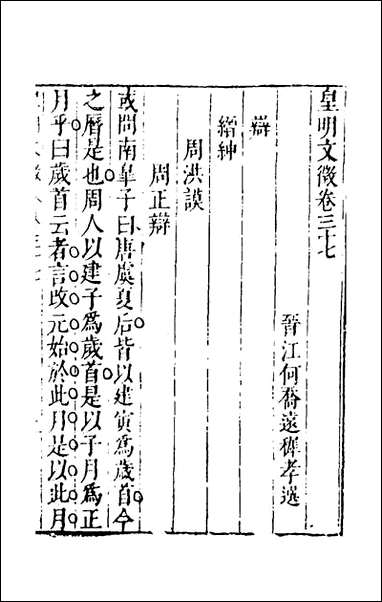 皇明文徵卷三十七
晉江何喬遠穉孝選
辯
縉紳
周洪謨
周正辯
或問南皐子曰唐虞夏后皆以建寅爲歲首今
之曆是也周人以建子爲歲首是以子月爲正
月乎曰歲首云者言改元始於此月是以此月